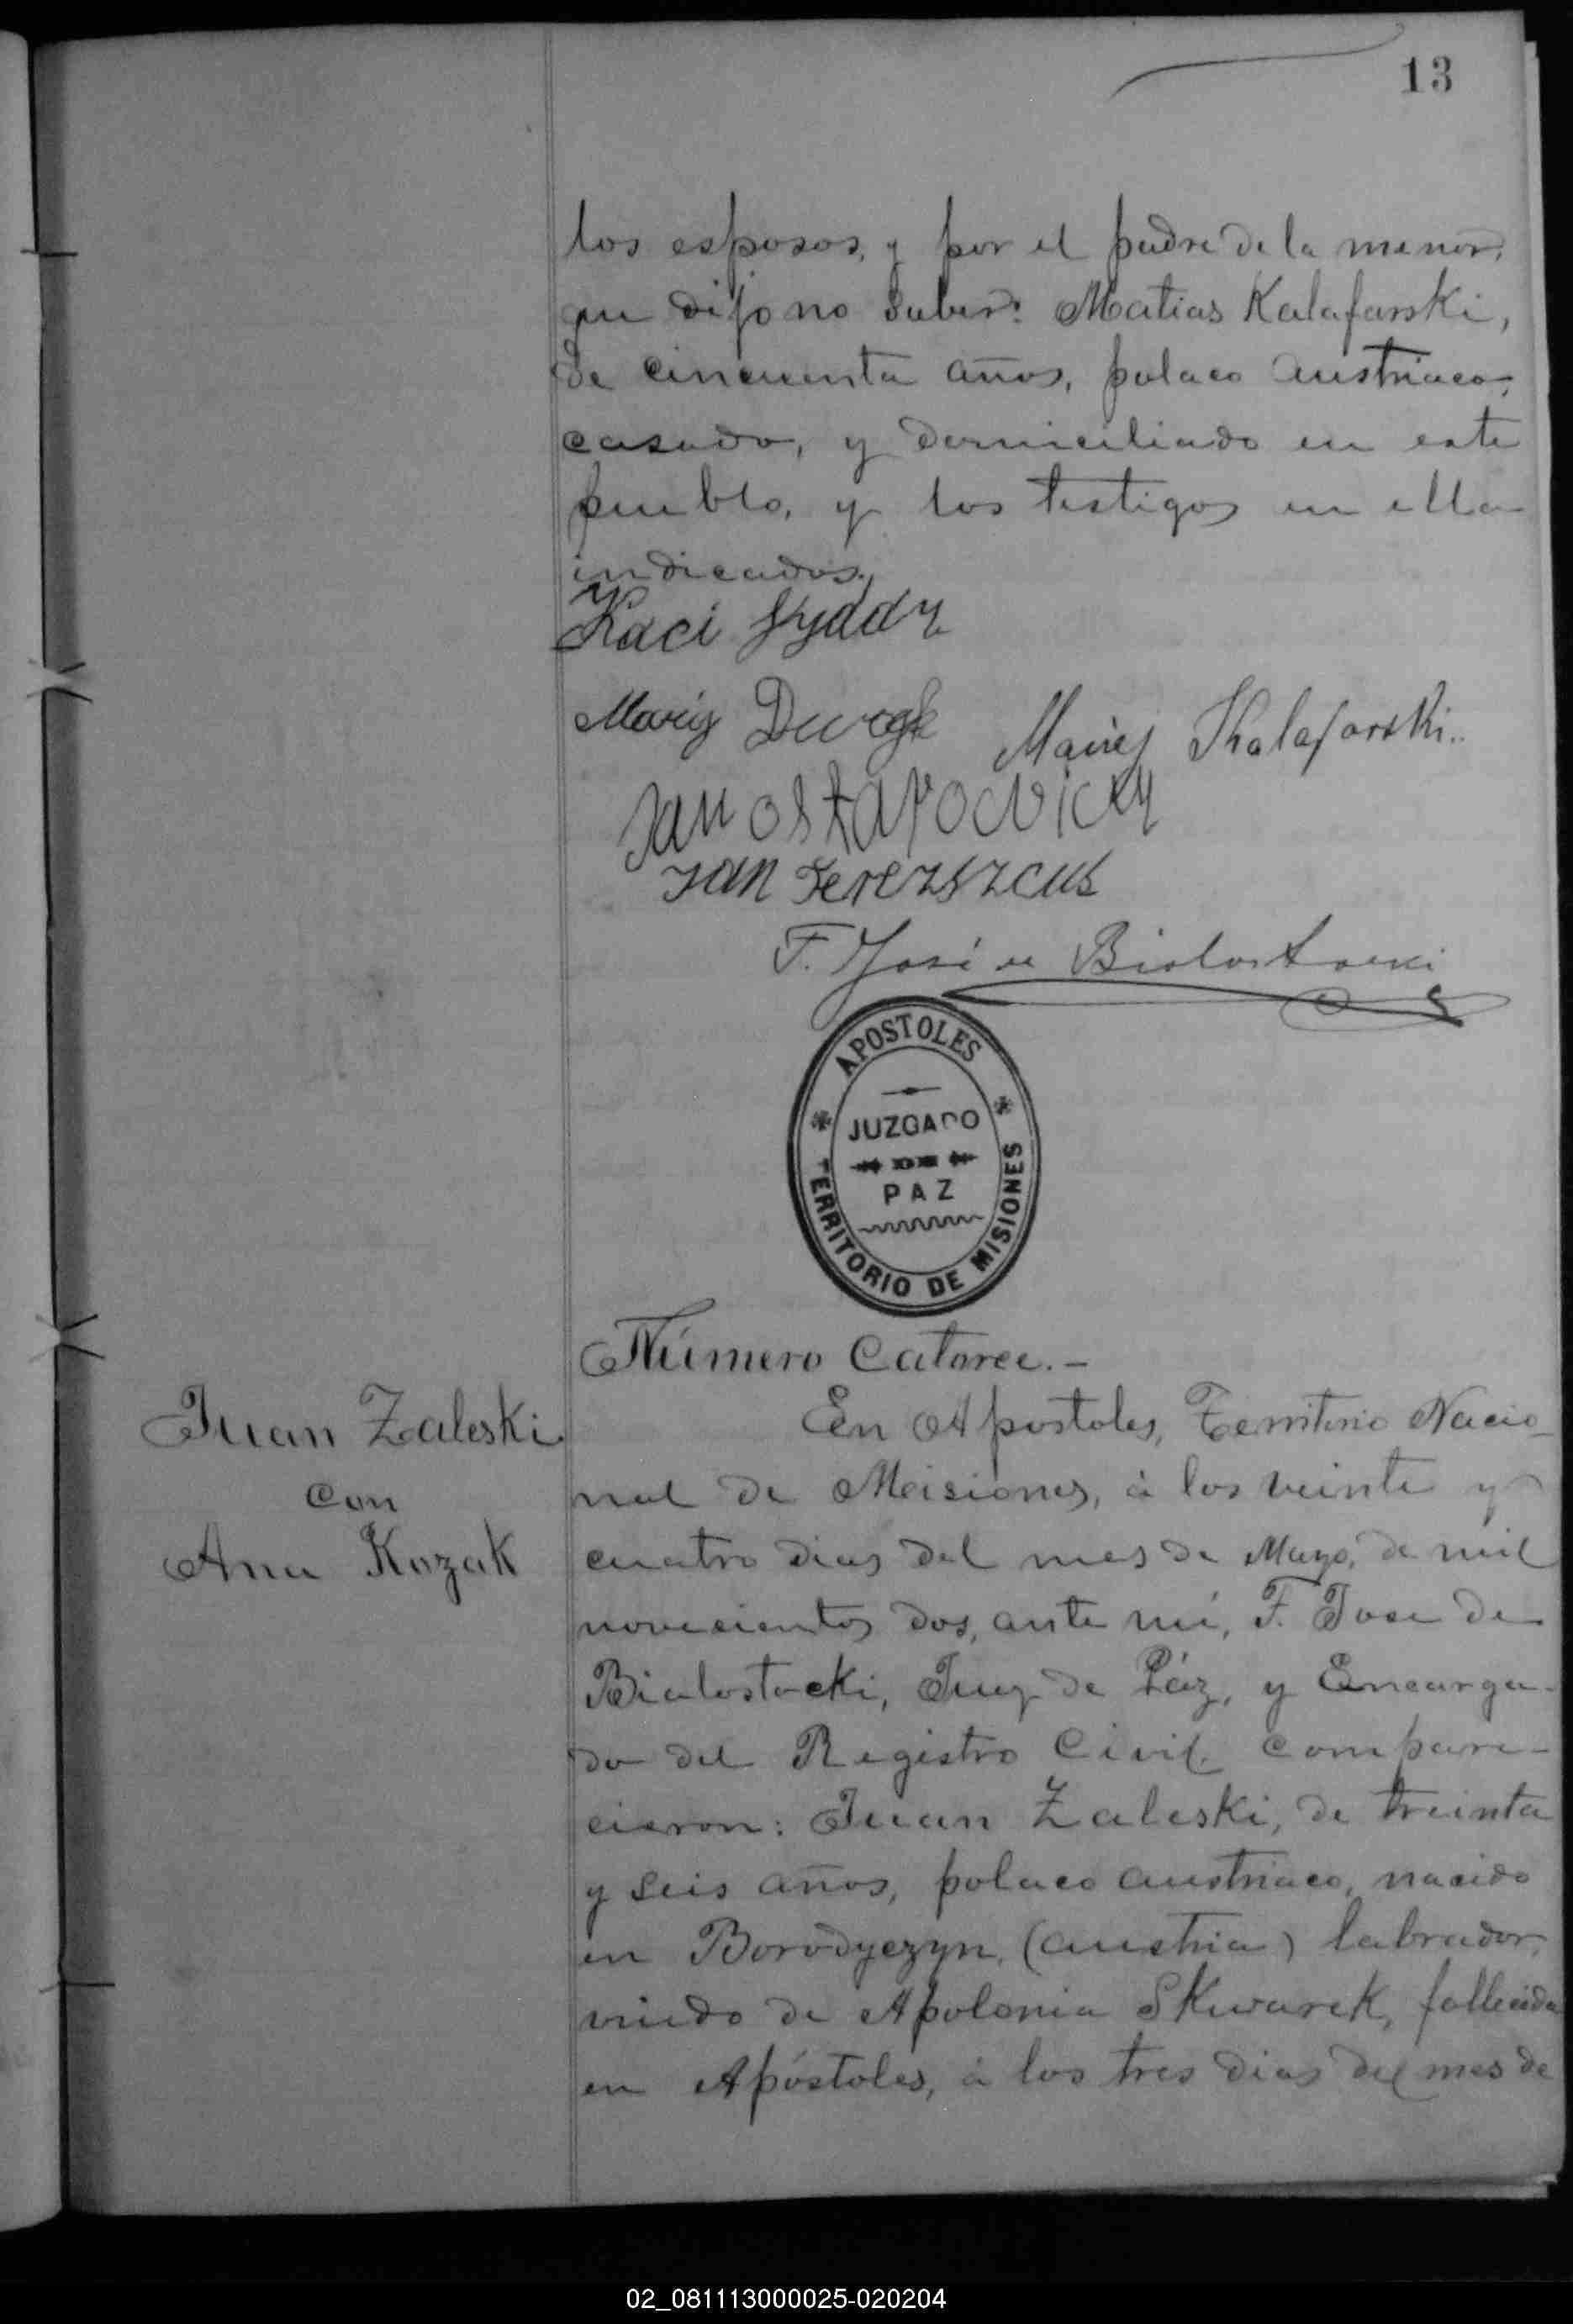 13
los esposos, y por el padre de la menor,
que dijo no saber: Matias Kalafarski,
de cincuenta años, polaco austriaco,
casado, y domiciliado en este
pueblo, y los testigos en ella
indicados.
Maciej Kalafarski
Jan Ostapowicz
F. José de Bialostocki
APOSTOLES
JUZGADO
DE
PAZ
TERRITORIO DE MISIONES
Número Catorce.-
Juan Zaleski
con
Ana Kozak
En Apostoles, Territorio Nacio-
nal de Misiones, á los veinte y
cuatro dias del mes de Mayo, de mil
novecientos dos, ante mí, F. Jose de
Bialostocki, Juez de Páz, y Encarga-
do del Registro Civil, compare-
cieron: Juan Zaleski, de treinta
y seis años, polaco austriaco, nacido
en Borodyczyn, (Austria) labrador,
viudo de Apolonia Skwarek, fallecida
en Apóstoles, á los tres dias del mes de
02_081113000025-020204